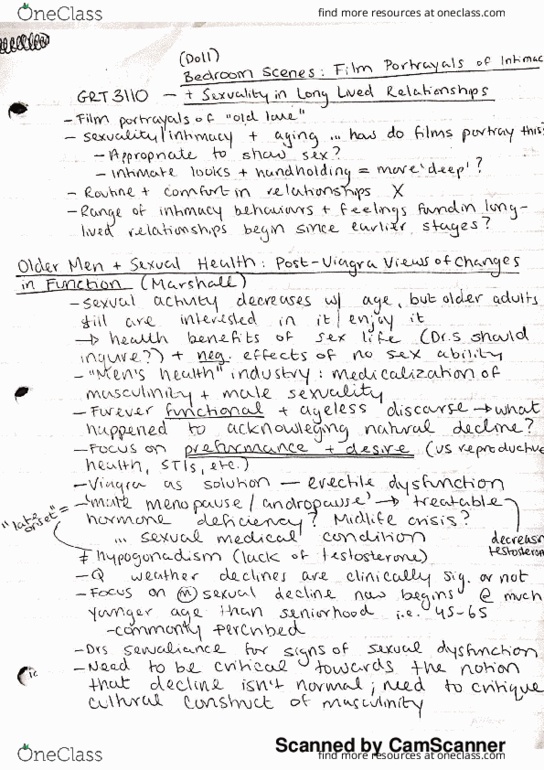 OneClass
find more resources at oneclass.com
(Doll)
Bedroom Scenes: Film Portrayals of Intimac
GRT3110 — + Sexuality in Long Lived Relationships
- Film portrayals of "old love"
- sexuality/intimacy + aging ... how do films portray this?
- Appropriate to show sex?
- Intimate looks + handholding = more 'deep'?
- Routine + comfort in relationships X
- Range of intimacy behaviours + feelings found in long-
lived relationships begin since earlier stages?
Older Men + Sexual Health: Post-Viagra Views of Changes
in Function (Marshall)
- sexual activity decreases w/ age, but older adults
still are interested in it/enjoy it
→ health benefits of sex life (Dr.s should
inquire?) + neg. effects of no sex ability
- "Men's health" industry: medicalization of
masculinity + male sexuality
- Forever functional + ageless discourse → what
happened to acknowleging natural decline?
- Focus on preformance + desire (vs reproductive
health, STIs, etc.)
- Viagra as solution – erectile dysfunction
"late onset" = - 'male menopause/andropause' → treatable
hormone deficiency? Midlife crisis?
... sexual medical condition
decreasn testosteron
≠ hypogonadism (lack of testosterone)
- Q weather declines are clinically sig. or not
- Focus on (m) sexual decline now begins @ much
younger age than seniorhood i.e. 45-65
- commonly percribed
- Drs servaliance for signs of sexual dysfunction
- Need to be critical towards the notion
that decline isn't normal; need to critique
cultural construct of masculinity
Scanned by CamScanner
OneClass
find more resources at oneclass.com